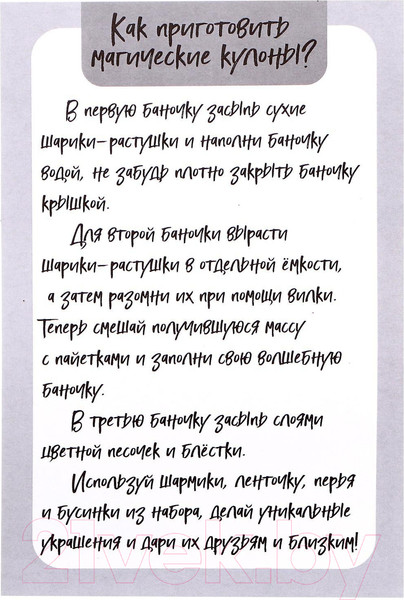 Как приготовить
магические кулоны?
В первую баночку засыпь сухие
шарики-растушки и наполни баночку
водой, не забудь плотно закрыть баночку
крышкой.
Для второй баночки вырасти
шарики-растушки в отдельной ёмкости,
а затем разомни их при помощи вилки.
Теперь смешай получившуюся массу
с пайетками и заполни свою волшебную
баночку.
В третью баночку засыпь слоями
цветной песочек и блёстки.
Используй шармики, ленточку, перья
и бусинки из набора, делай уникальные
украшения и дари их друзьям и близким!
21vek.by